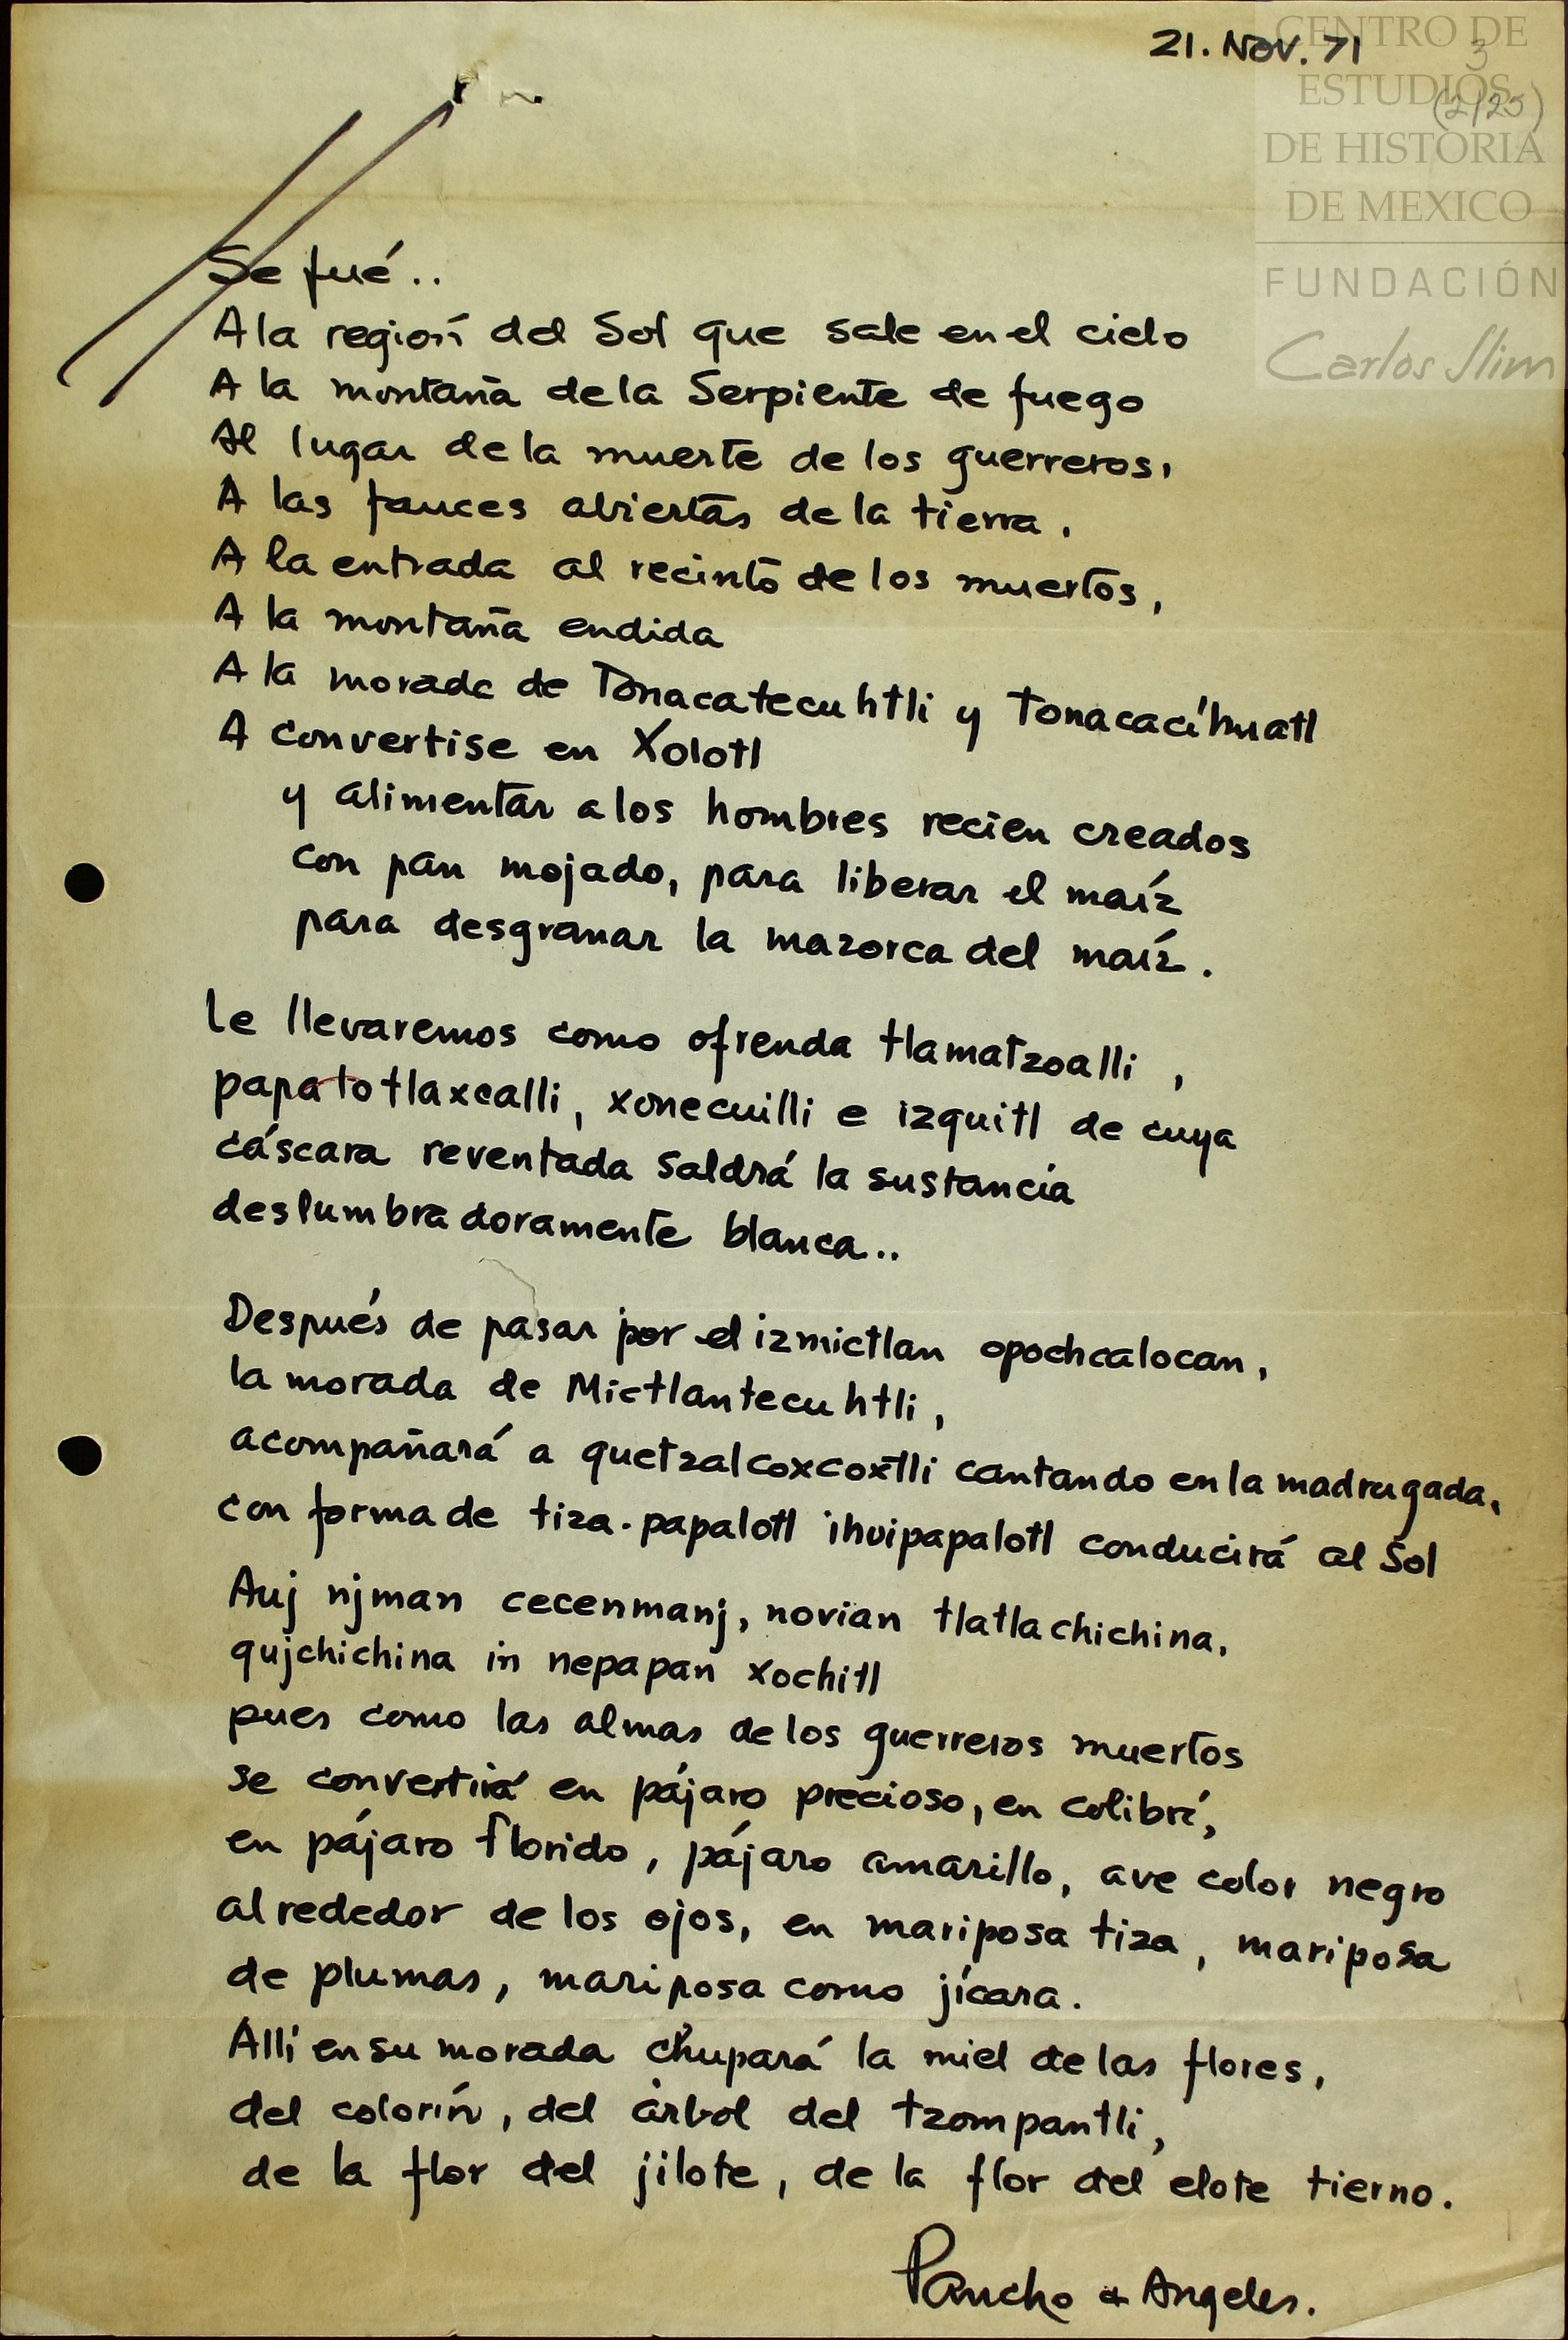 21. NOV. 71
3
(2/25)
CENTRO DE
ESTUDIOS
DE HISTORIA
DE MEXICO
FUNDACIÓN
Carlos Slim
Se fué..
A la región del Sol que sale en el cielo
A la montaña de la Serpiente de fuego
Al lugar de la muerte de los guerreros,
A las fauces abiertas de la tierra.
A la entrada al recinto de los muertos,
A la montaña endida
A la morada de Tonacatecuhtli y Tonacacíhuatl
A convertise en Xolotl
y alimentar a los hombres recien creados
con pan mojado, para liberar el maíz
para desgranar la mazorca del maíz.
Le llevaremos como ofrenda tlamatzoalli,
papatotlaxcalli, xonecuilli e izquitl de cuya
cáscara reventada saldrá la sustancia
deslumbradoramente blanca..
Después de pasar por el izmictlan opochcalocan,
la morada de Mictlantecuhtli,
acompañará a quetzalcoxcoxtli cantando en la madrugada,
con forma de tiza-papalotl ihuipapalotl conducirá al Sol
Auj njman cecenmanj, novian tlatlachichina,
qujchichina in nepapan xochitl
pues como las almas de los guerreros muertos
se convertirá en pájaro precioso, en colibrí,
en pájaro florido, pájaro amarillo, ave color negro
alrededor de los ojos, en mariposa tiza, mariposa
de plumas, mariposa como jícara.
Allí en su morada chupará la miel de las flores,
del colorín, del árbol del tzompantli,
de la flor del jilote, de la flor del elote tierno.
Pancho & Angeles.